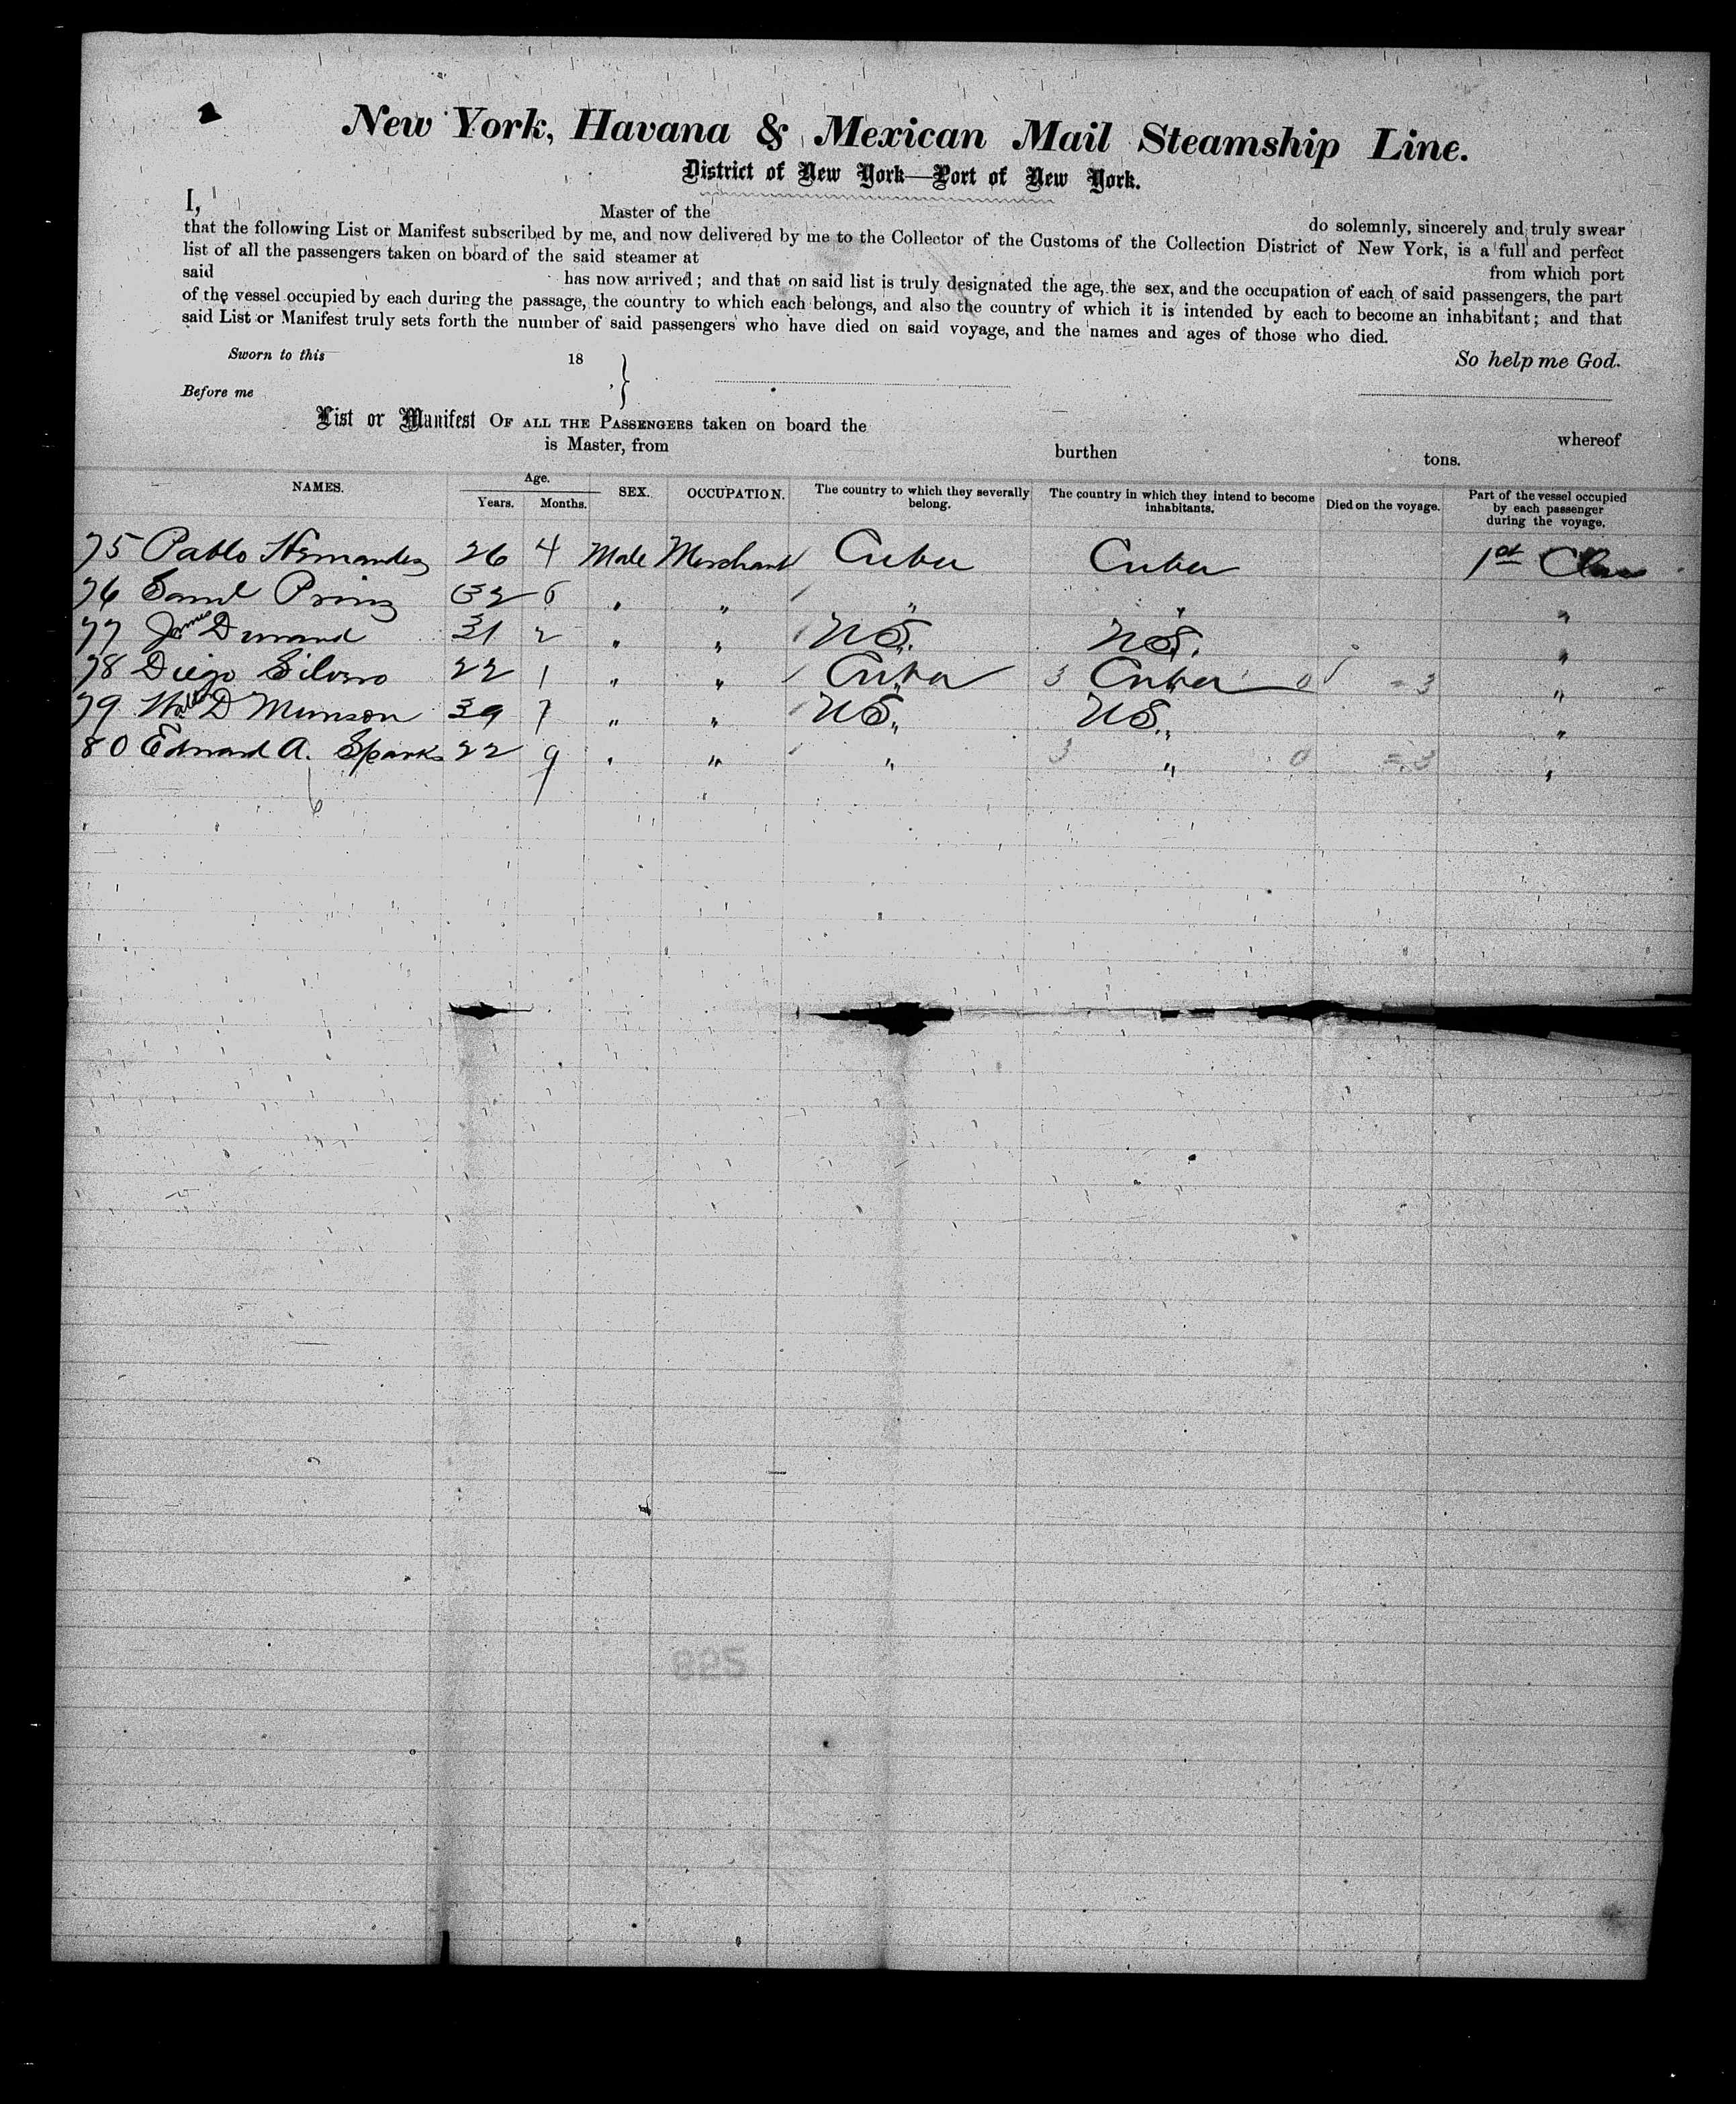 New York, Havana & Mexican Mail Steamship Line.
District of New York—Port of New York.
I, Master of the do solemnly, sincerely and truly swear
that the following List or Manifest subscribed by me, and now delivered by me to the Collector of the Customs of the Collection District of New York, is a full and perfect
list of all the passengers taken on board of the said steamer at from which port
said has now arrived; and that on said list is truly designated the age, the sex, and the occupation of each of said passengers, the part
of the vessel occupied by each during the passage, the country to which each belongs, and also the country of which it is intended by each to become an inhabitant; and that
said List or Manifest truly sets forth the number of said passengers who have died on said voyage, and the names and ages of those who died.
Sworn to this 18 So help me God.
Before me
List or Manifest OF ALL THE PASSENGERS taken on board the whereof
is Master, from burthen tons.
NAMES. Age. Years. Months. SEX. OCCUPATION. The country to which they severally belong. The country in which they intend to become inhabitants. Died on the voyage. Part of the vessel occupied by each passenger during the voyage.
75 Pablo Hernandez 26 4 Male Merchant Cuba Cuba 1st Class
76 Saml Prinz 32 6 " " " " "
77 James Durand 31 2 " " U S. U S. "
78 Diego Silverio 22 1 " " Cuba 3 Cuba 0 = 3 "
79 Walter D Munson 39 7 " " U S. U S. "
80 Edward A. Sparks 22 9 " " " 3 " 0 = 3 "
6